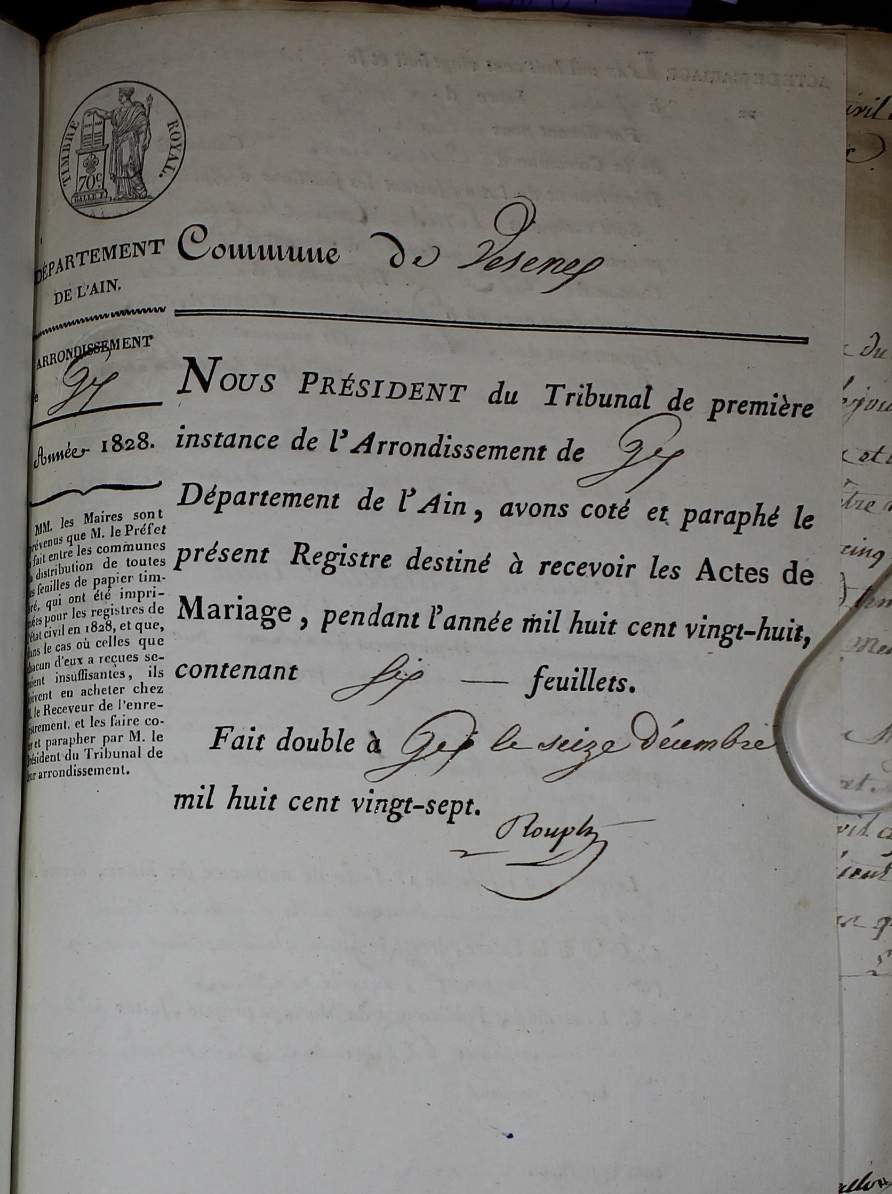 TIMBRE ROYAL.
70c
DÉPARTEMENT
DE L'AIN.
Commune de Vesenex
ARRONDISSEMENT
Gex
Année 1828.
MM. les Maires sont
prévenus que M. le Préfet
fait entre les communes
distribution de toutes
feuilles de papier tim-
bré, qui ont été impri-
mées pour les registres de
l'état civil en 1828, et que,
dans le cas où celles que
chacun d'eux a reçues se-
roient insuffisantes, ils
doivent en acheter chez
M. le Receveur de l'enre-
gistrement, et les faire co-
ter et parapher par M. le
Président du Tribunal de
leur arrondissement.
NOUS PRÉSIDENT du Tribunal de première
instance de l'Arrondissement de Gex
Département de l'Ain, avons coté et paraphé le
présent Registre destiné à recevoir les Actes de
Mariage, pendant l'année mil huit cent vingt-huit,
contenant six — feuillets.
Fait double à Gex le seize Décembre
mil huit cent vingt-sept.